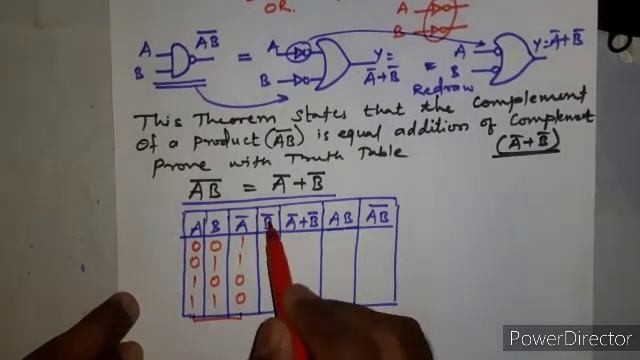 OR.
A
B
A AB̅ Y= A Y=A̅+B̅
B B A̅+B̅ = B
Redraw
This Theorem states that the complement
Of a product (A̅B̅) is equal addition of Complemet
Prove with Truth Table (A̅+B̅)
A̅B̅ = A̅+B̅
A B A̅ B̅ A̅+B̅ AB A̅B̅
0 0 1
0 1 1
1 0 0
1 1 0
PowerDirector